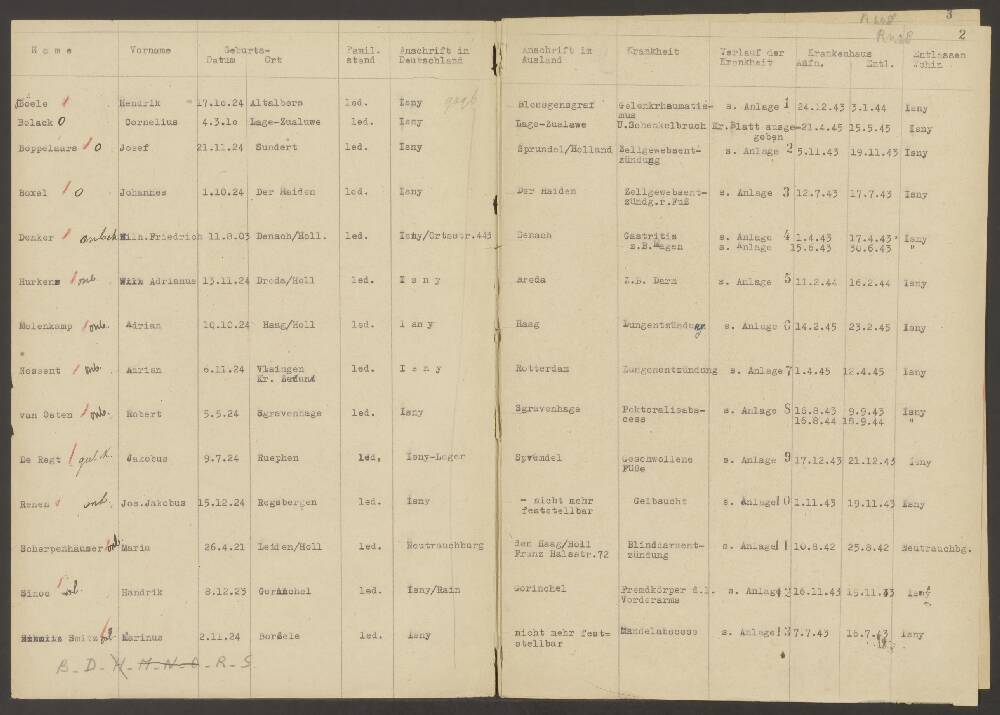 3
R 668
2
Name Vorname Geburts- Famil. Anschrift in Anschrift in Krankheit Verlauf der Krankenhaus Entlassen
Datum Ort stand Deutschland Ausland Krankheit Aufn. Entl. Wohin
Boele Hendrik 17.10.24 Altalbers led. Isny Blossgensgraf Gelenkrheumatis- s. Anlage 1 24.12.43 3.1.44 Isny
mus
Bolack O Cornelius 4.3.10 Lage-Zualuwe led. Isny Lage-Zualuwe U.Schenkelbruch Kr.Blatt ausge- 21.4.45 15.5.45 Isny
geben
Boppelaars O Josef 21.11.24 Sundert led. Isny Sprundel/Holland Zellgewebsent- s. Anlage 2 5.11.43 19.11.43 Isny
zündung
Boxel O Johannes 1.10.24 Der Haiden led. Isny Der Haiden Zellgewebsent- s. Anlage 3 12.7.43 17.7.43 Isny
zündg.r.Fuß
Denker Wilh.Friedrich 11.8.03 Denach/Holl. led. Isny/Ortsstr.443 Denach Gastritis s. Anlage 4 1.4.43 17.4.43 Isny
z.B.Magen s. Anlage 15.6.43 30.6.43 "
Hurkens onb Adrianus 13.11.24 Breda/Holl led. Isny Breda Z.B. Darm s. Anlage 5 11.2.44 16.2.44 Isny
Melenkamp onb. Adrian 10.10.24 Haag/Holl led. Isny Haag Lungentzündung s. Anlage 6 14.2.45 23.2.45 Isny
Nessent onb. Adrian 6.11.24 Vlaingen led. Isny Rotterdam Lungenentzündung s. Anlage 7 1.4.45 12.4.45 Isny
van Osten onb. Robert 5.5.24 Sgravenhage led. Isny Sgravenhage Pektoralisabs- s. Anlage 8 16.8.43 9.9.43 Isny
cess 16.8.44 18.9.44 "
De Regt Jakobus 9.7.24 Ruephen led. Isny-Lager Sprundel Geschwollene s. Anlage 9 17.12.43 21.12.43 Isny
Füße
Renen onb. Jos.Jakobus 15.12.24 Regsbergen led. Isny - nicht mehr Gelbsucht s. Anlage 10 1.11.43 19.11.43 Isny
feststellbar
Scherpenhauser onb. Maria 26.4.21 Leiden/Holl led. Neutrauchburg Den Haag/Holl Blinddarment- s. Anlage 11 10.8.42 25.8.42 Neutrauchbg.
Franz Halsstr.72 zündung
Sinoo Handrik 8.12.23 Gorinchel led. Isny/Rain Gorinchel Fremdkörper d.l. s. Anlage 12 16.11.43 19.11.43 Isny
Vorderarms
Smitz Marinus 2.11.24 Borsele led. Isny nicht mehr fest= Mandelabscess s. Anlage 13 7.7.43 16.7.43 Isny
stellbar
B - D - H - M - N - O - R - S